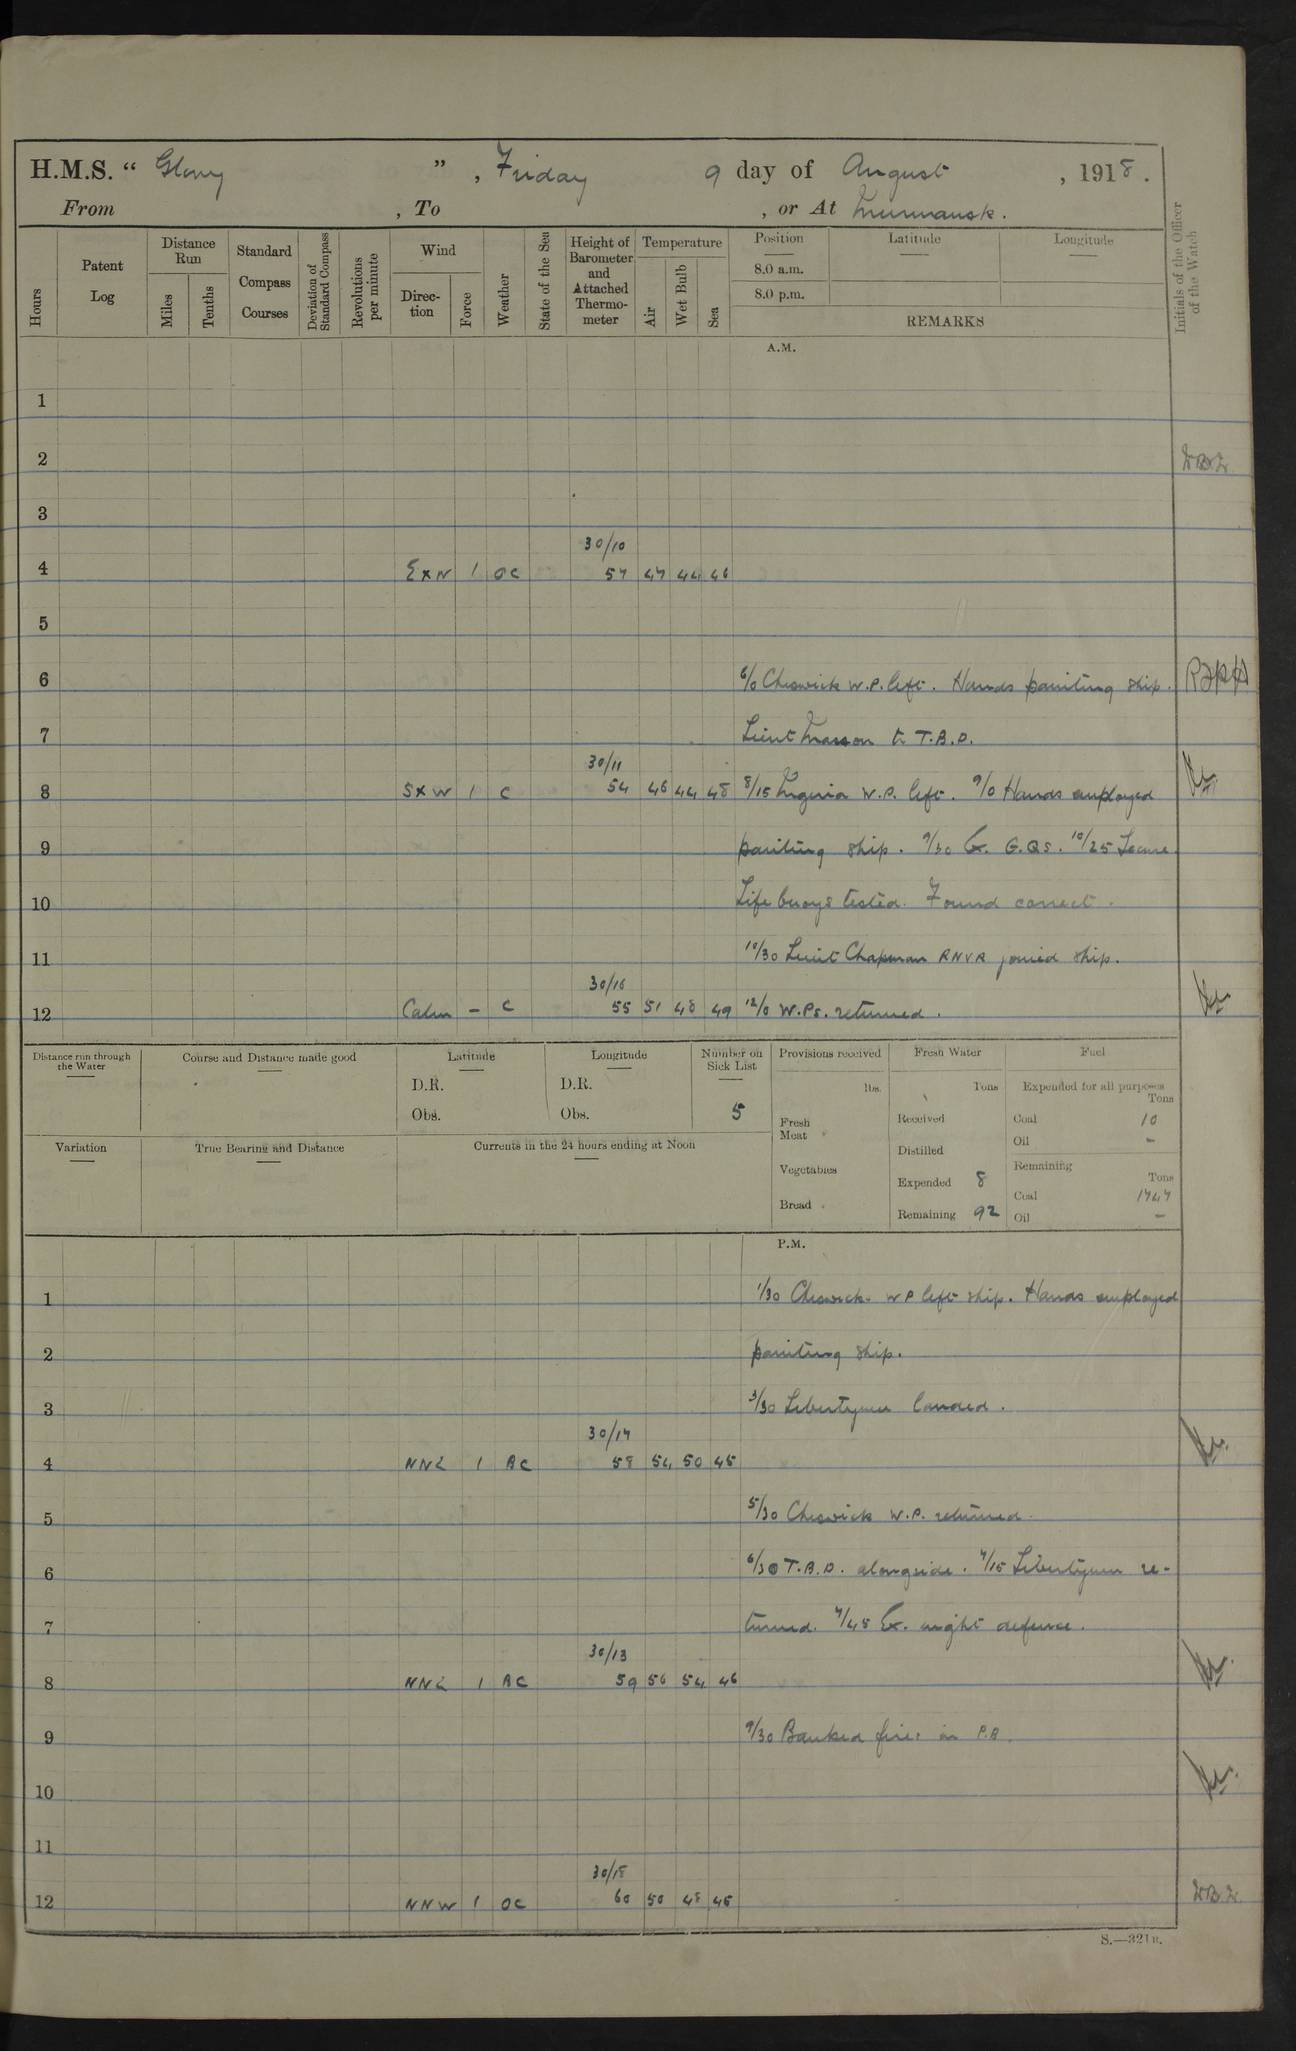 H.M.S. “ Glory ” , Friday 9 day of August , 1918 .
From , To , or At Murmansk .
Hours
Patent Log
Distance Run
Miles
Tenths
Standard Compass Courses
Deviation of Standard Compass
Revolutions per minute
Wind
Direc-tion
Force
Weather
State of the Sea
Height of Barometer and Attached Thermo-meter
Temperature
Air
Wet Bulb
Sea
Position
8.0 a.m.
8.0 p.m.
Latitude
Longitude
REMARKS
Initials of the Officer of the Watch
A.M.
1
2
3
30/10
4 ExN 1 OC 57 47 44 46
5
6 6/0 Cheswick W.P. left. Hands painting ship.
7 Lieut Masson to T.B.D.
30/11
8 SxW 1 C 54 46 44 48 8/15 W.P. left. 9/0 Hands employed
9 painting ship. 9/30 Ex. G.Qs. 10/25 Secure.
10 Life buoys tested. Found correct.
11 10/30 Lieut Chapman RNVR joined ship.
30/16
12 Calm - C 55 51 48 49 12/0 W.Ps. returned.
Distance run through the Water
Course and Distance made good
Latitude
D.R.
Obs.
Longitude
D.R.
Obs.
Number on Sick List
5
Provisions received
lbs.
Fresh Meat
Vegetables
Bread
Fresh Water
Tons
Received
Distilled
Expended 8
Remaining 92
Fuel
Expended for all purposes
Tons
Coal 10
Oil -
Remaining
Tons
Coal 1747
Oil -
Variation
True Bearing and Distance
Currents in the 24 hours ending at Noon
P.M.
1 1/30 Cheswick W P left ship. Hands employed
2 painting ship.
3 3/30 Libertymen landed.
30/14
4 NNE 1 BC 58 54 50 45
5 5/30 Cheswick W.P. returned.
6 6/30 T.B.D. alongside. 7/15 Libertymen re-
7 turned. 7/45 Ex. night defence.
30/13
8 NNE 1 BC 59 56 54 46
9 9/30 Banked fires in P.B.
10
11
30/18
12 NNW 1 OC 60 50 48 45
S.—321B.